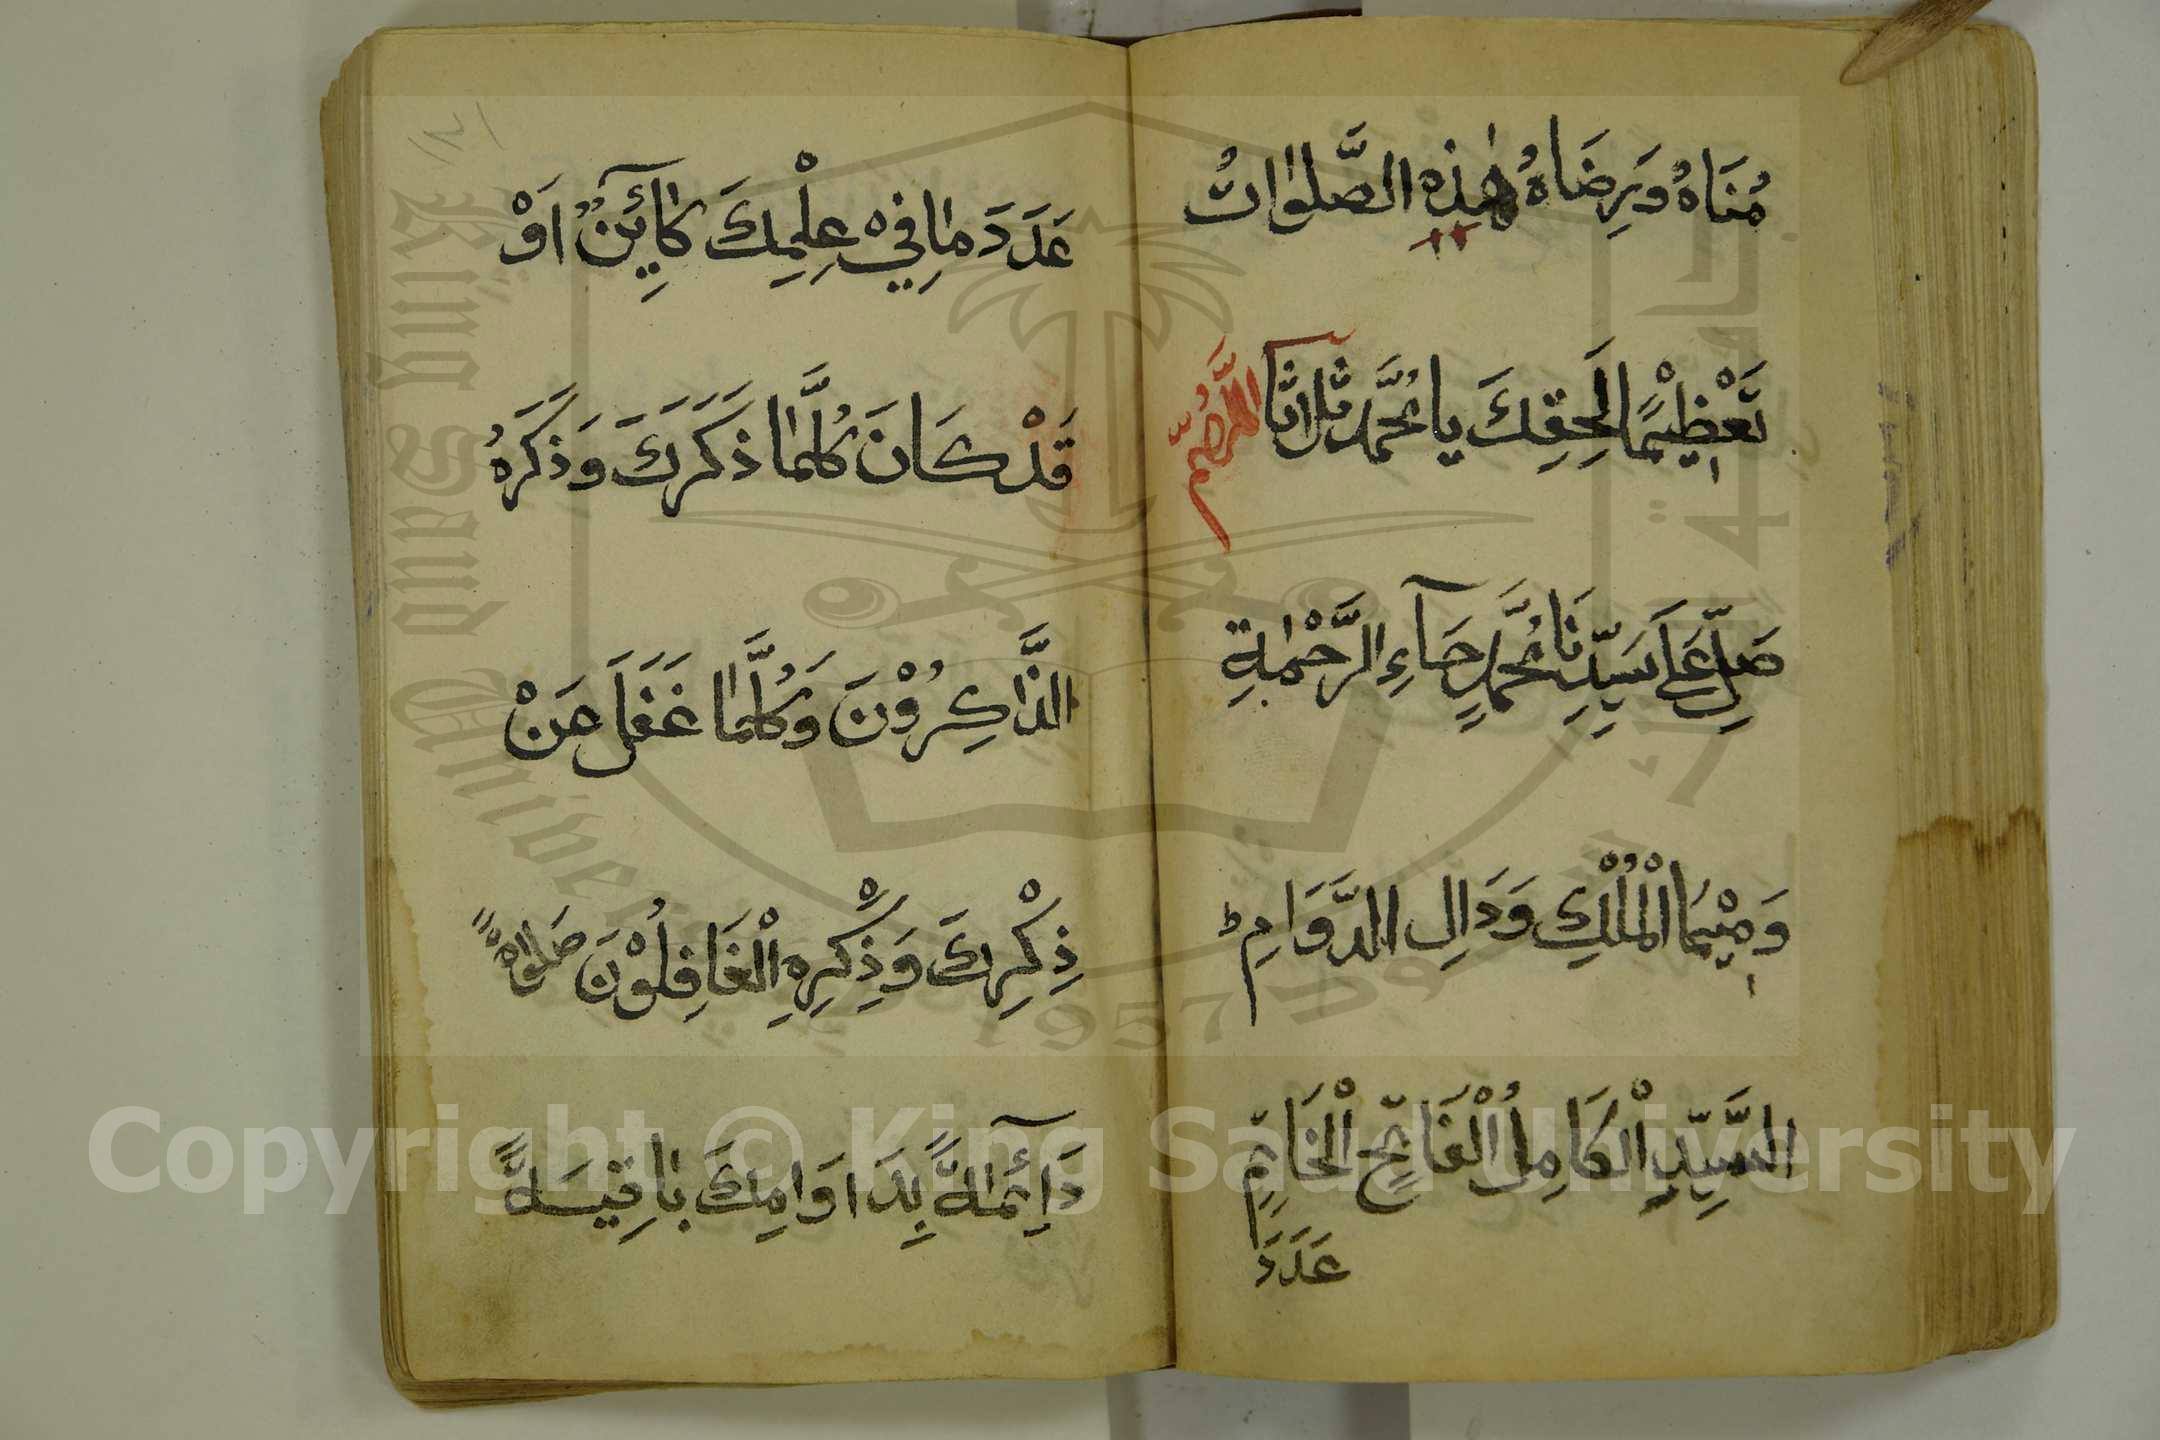 مُنَاهُ وَرِضَاهُ هٰذِهِ الصَّلَوٰاتُ
تَعْظِيْمًا لِحَقِكَ يَا مُحَمَّد ثلٰاثًا اللّٰهُمَّ
صَلِّ عَلَى سَيِّدِنَا مُحَمَّدٍ حَآءِ الرَّحْمٰةِ
وَمِيْمَا الْمُلْكِ وَدَالِ الدَّوَامِ
السَّيِّدِ الْكَامِلِ الْفَاتِحِ الْخَاتِمِ
عَدَدَ
١٢١
عَدَدَ مٰا فِيْ عِلْمِكَ كٰآئِنٌ اَوْ
قَدْ كَانَ كُلَّمٰا ذَكَرَكَ وَذَكَرَهُ
الذَّاكِرُوْنَ وَكُلَّمٰا غَفَلَ عَنْ
ذِكْرِكَ وَذِكْرِهِ الْغَافِلُوْنَ صَلٰوةً
دَآئِمَةً بِدَوَامِكَ بٰاقِيَةً
King Saud University
1957
Copyright © King Saud University